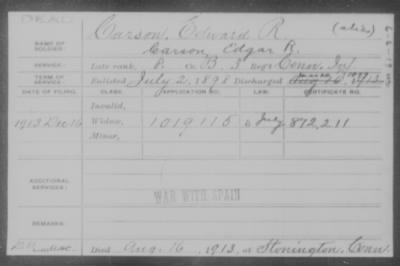 DEAD
Carson, Edward R. (alias)
NAME OF SOLDIER: Carson, Edgar R.
SERVICE: Late rank, P. Co. B. 3 Reg't Conn. Inf.
TERM OF SERVICE: Enlisted July 2, 1898 Discharged
DATE OF FILING. CLASS. APPLICATION NO. LAW. CERTIFICATE NO.
Invalid,
1913 Dec 16 Widow, 1019116 July 872,211
Minor,
ADDITIONAL SERVICES:
WAR WITH SPAIN
REMARKS:
Died Aug. 16, 1913, at Stonington, Conn.